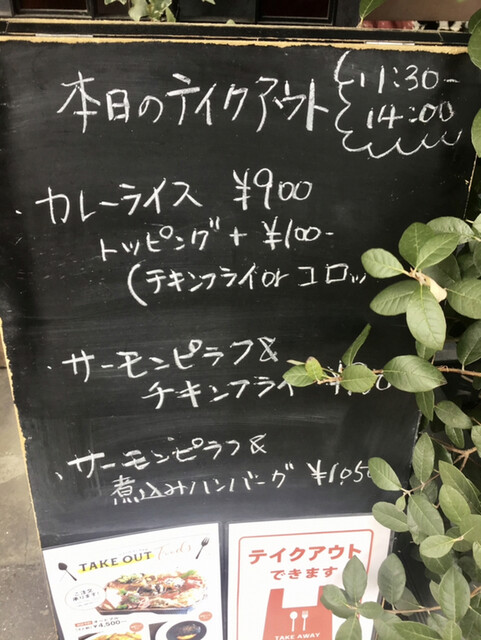 本日のテイクアウト
11:30-
14:00
・カレーライス ¥900
トッピング + ¥100-
(チキンフライor コロッ
・サーモンピラフ&
チキンフライ
・サーモンピラフ&
煮込みハンバーグ ¥1,050
TAKE OUT Foods
¥4,500
テイクアウト
できます
TAKE AWAY